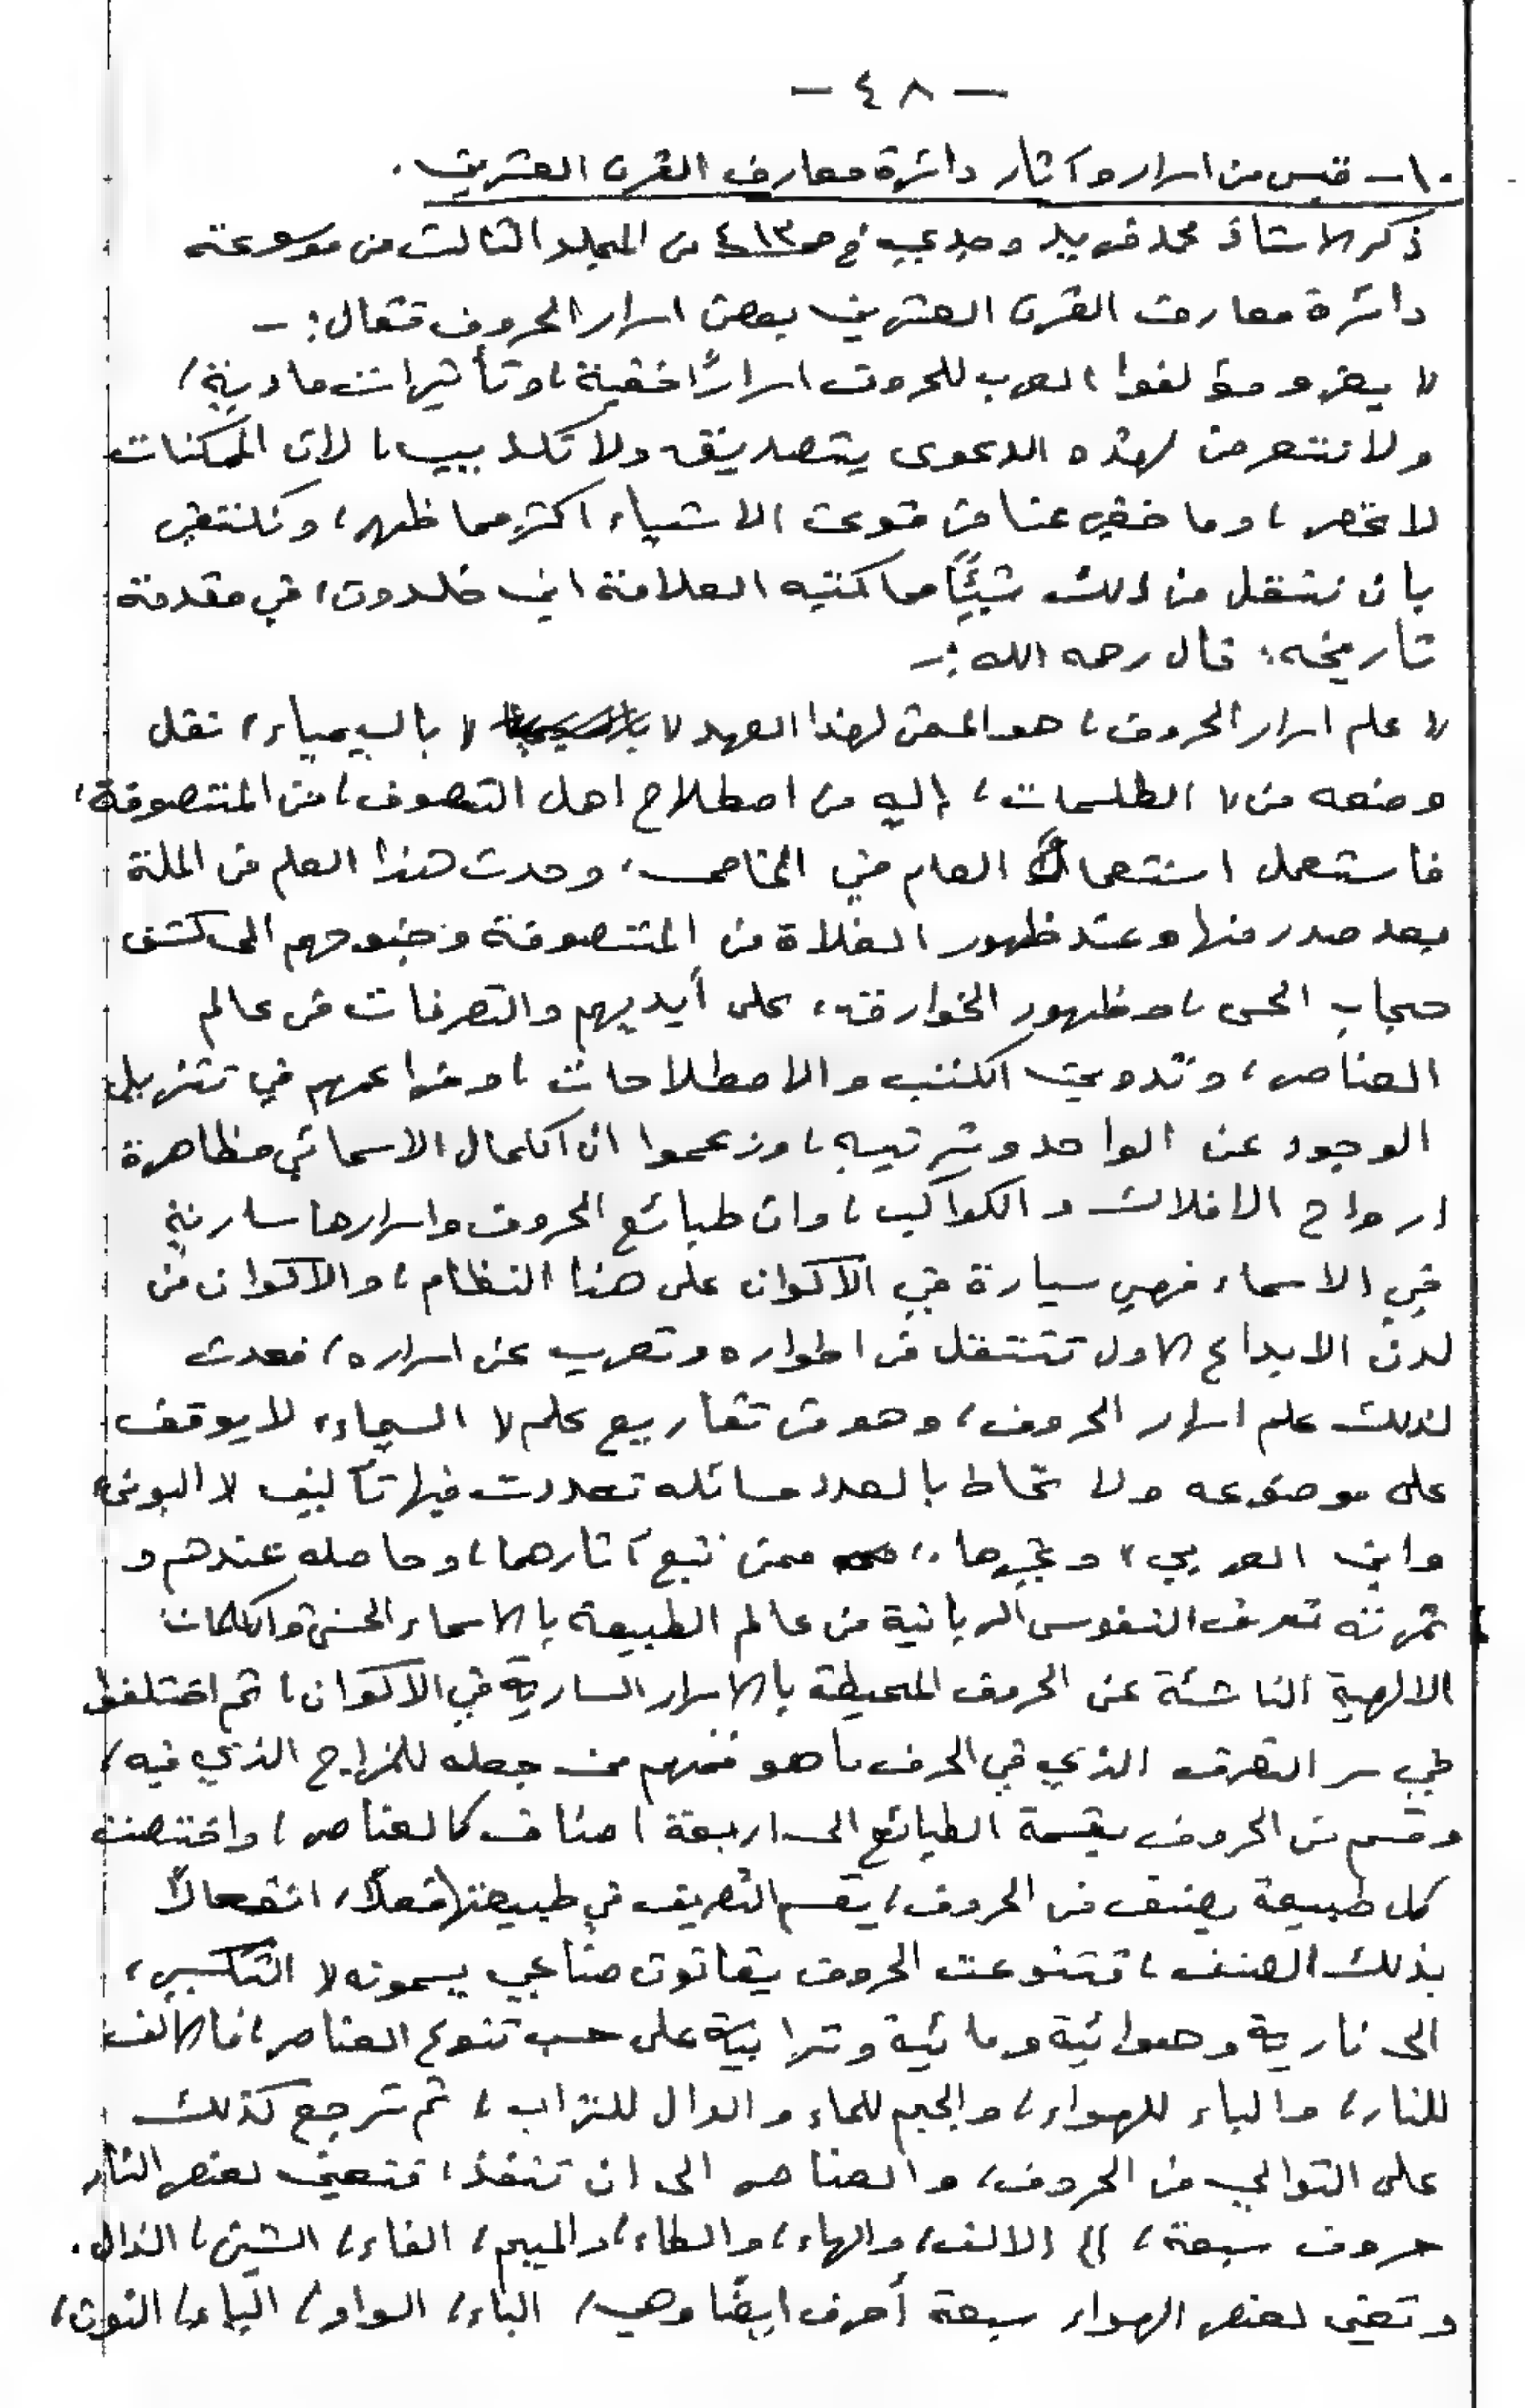 - ٤٨ -
١٠- قبس من اسرار وآثار دائرة معارف القرن العشرين.
ذكر الاستاذ محمد فريد وجدي في ص ٤١٣ من المجلد الثالث من موسوعته
دائرة معارف القرن العشرين بعض اسرار الحروف فقال:-
لا يعزو مؤلفوا العرب للحروف اسراراً خفية، وتأثيرات مادية،
ولا نتعرض لهذه الدعوى بتصديق ولا تكذيب، لان الممكنات
لا تحصر، وما خفي عنا من قوى الاشياء اكثر مما ظهر، ونكتفي
بان ننقل من ذلك شيئاً مما كتبه العلامة ابن خلدون، في مقدمة
تأريخه، قال رحمه الله:-
لا علم اسرار الحروف، هو المسمى لهذا العهد لا بالسيمياء، نقل
وضعه من لا الطلسمات، إليه من اصطلاح اهل التصوف، من المتصوفة،
فاستعمل استعمال العام في الخاص، وحدث هذا العلم في الملة
بعد صدر منها وعند ظهور الغلاة من المتصوفة وجنوحهم الى كشف
حجاب الحس، وظهور الخوارق، على أيديهم والتصرفات في عالم
العناصر، وتدوين الكتب والاصطلاحات، ومزاعمهم في تنزيل
الوجود عن الواحد وترتيبه، وزعموا ان الكمال الاسمائي مظاهرة
ارواح الافلاك والكواكب، وان طبائع الحروف واسرارها سارية
في الاسماء فهي سيارة في الأكوان على هذا النظام، والأكوان من
لدن الابداع الاول تتنقل في اطواره وتعرب عن اسراره، فحدث
لذلك علم اسرار الحروف، وهو من تفاريع علم لا السيماء، لا يوقف
على موضوعه ولا تحاط بالعدد مسائله تعددت فيها تآليف لا البوني،
وابن العربي، وغيرها، ممن تبع آثارهما، وحاصله عندهم و
ثمرته تصرف النفوس الربانية من عالم الطبيعة بالاسماء الحسنى والكلمات
الالهية الناشئة عن الحروف المحيطة بالاسرار السارية في الاكوان، ثم اختلفوا
في سر التصرف الذي في الحرف ما هو فمنهم من جعله للمزاج الذي فيه،
وقسم من الحروف بقسمة الطبائع الى اربعة اصناف كالعناصر، واختصت
كل طبيعة بصنف من الحروف، يقسم التصريف في طبيعتها فعلاً، انفعالاً
بذلك الصنف، فتنوعت الحروف بقانون صناعي يسمونه لا التكسير،
الى نارية وهوائية ومائية وترابية على حسب تنوع العناصر، فالالف
للنار، والباء للهواء، والجيم للماء والدال للتراب، ثم ترجع كذلك
على التوالي من الحروف، والعناصر الى ان تنفذ، فتعين لعنصر النار
حروف سبعة، الالف، والهاء، والطاء، والميم، الفاء، الشين، الذال.
وتعين لعنصر الهواء سبعة أحرف ايضاً وهي، الباء، الواو، الياء، النون،